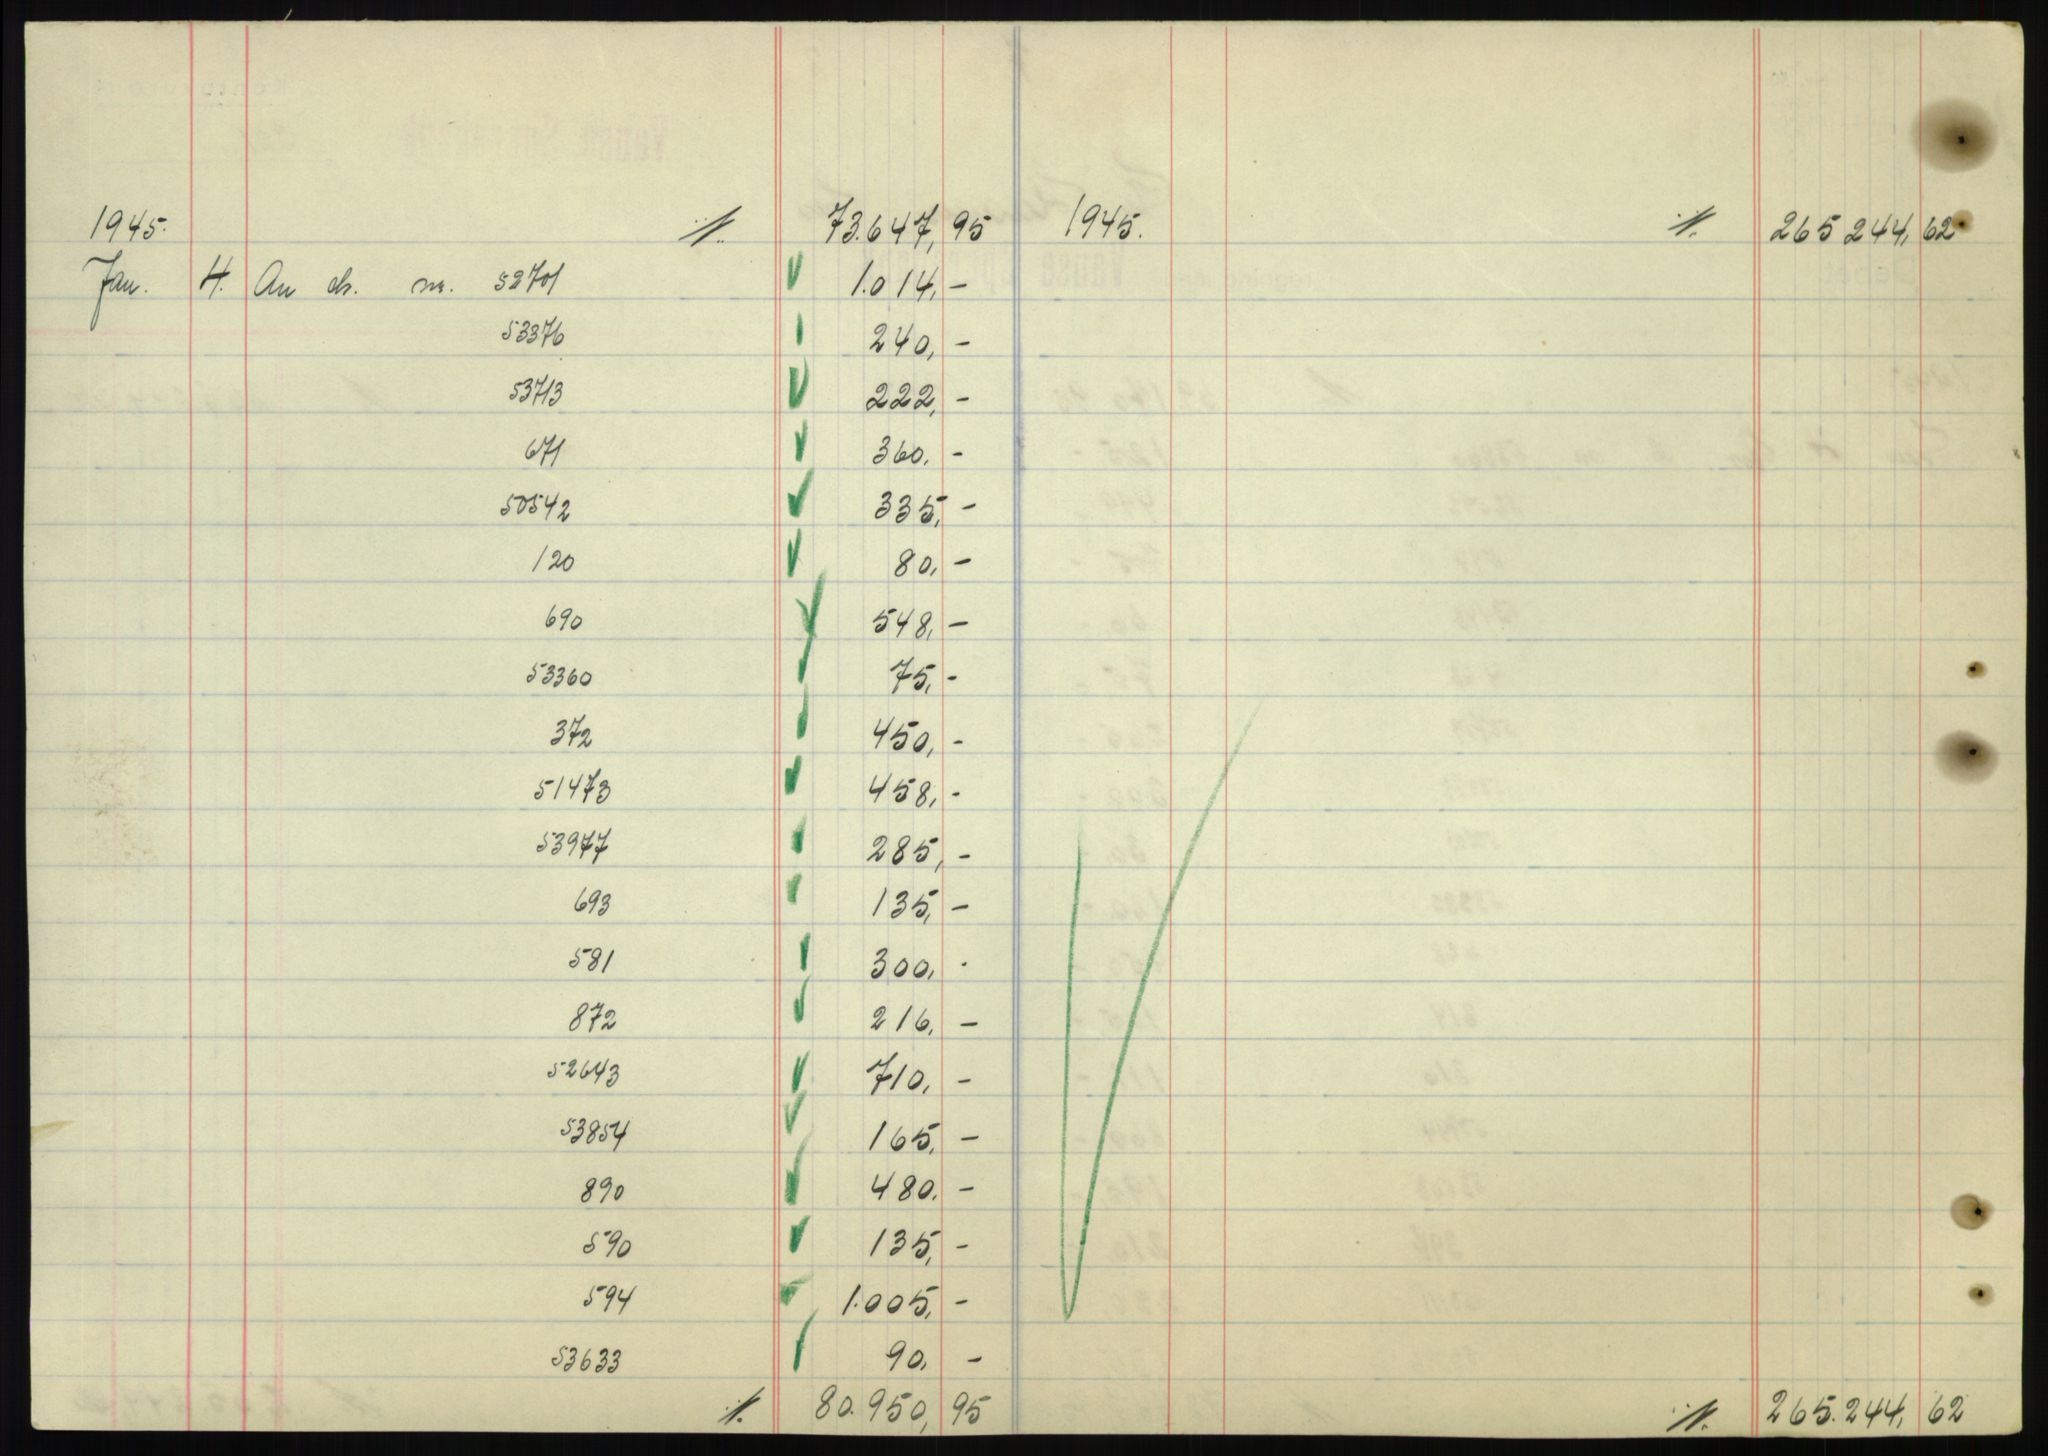 1945. ·/. 73.647,95
Jan. 4. An ch. nr. 52701 1.014,-
53376 240,-
53713 222,-
671 360,-
50542 335,-
120 80,-
690 548,-
53360 75,-
372 450,-
51473 458,-
53977 285,-
693 135,-
581 300,-
872 216,-
52643 710,-
53854 165,-
890 480,-
590 135,-
594 1.005,-
53633 90,-
·/. 80.950,95
1945. ·/. 265.244,62
·/. 265.244,62